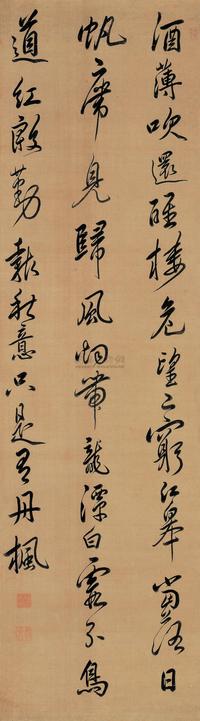 酒薄吹還醒樓危望已窮江皋當落日
帆席見歸風烟帶龍潭白霞分鳥
道紅殷勤報秋意只是有丹楓